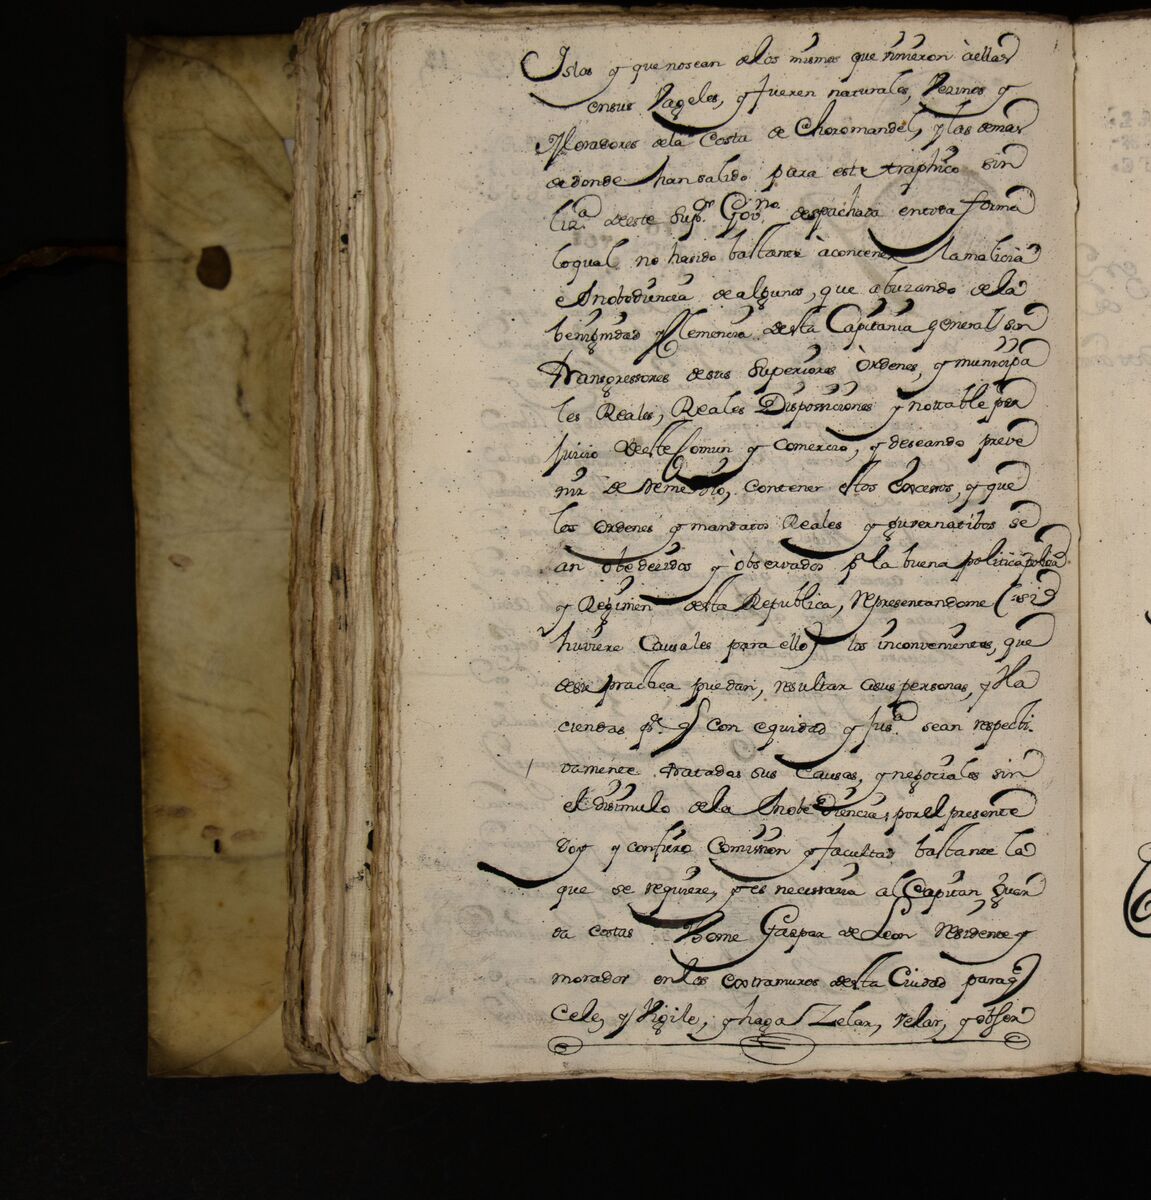 Islas y que no sean de los mismos que vinieron à ellas
en sus Vageles, y fueren naturales, Vezinos y
Moradores de la Costa de Choromandel, y las demas
de donde han salido para este traphico sin
liz.ª de este Sup.or Gov.no despachada en toda forma
lo qual no ha sido bastante à contener la malicia
è Inobediencia de algunos, que abuzando de la
benignidad y Clemencia desta Capitania general son
Transgressores de sus Superiores Òrdenes, y municipa
les Reales, Reales Disposiciones y nottable per
juicio deste Comun y Comercio, y deseando preve
nir de remedio, contener estos Excessos, y que
los ordenes y mandatos Reales y guvernatibos se
an obedecidos y òbservados p.r la buena politica
y Regimen desta Republica, representandome (si
huviere Causales para ello) los inconvenientes, que
desu practica puedan, resultar asus personas, y Ha
ciendas p.r q con equidad y Jus.ª sean respecti
vamente tratadas sus Causas, y negociales sin
el disimulo de la Inobediencia; por el presente
doy y confiero Comission y facultad bastante la
que se requiere, y es necessaria al Capitan guar
da costas Thome Gaspar de Leon Residente y
morador en los extramuros desta Ciudad para q
Cele, y Vigile, y haga Zelar, velar, y obser